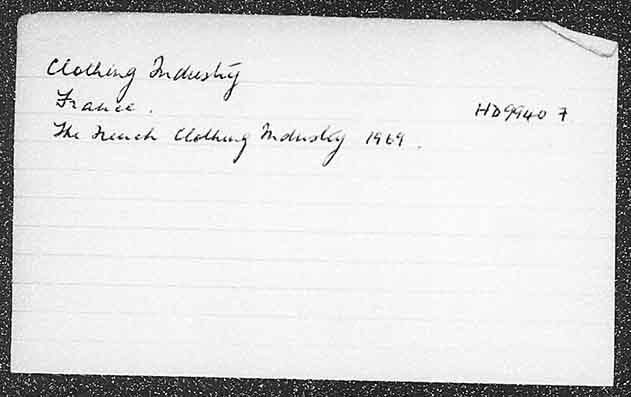 Clothing Industry
France.
HD9940 7
The French Clothing Industry 1969.